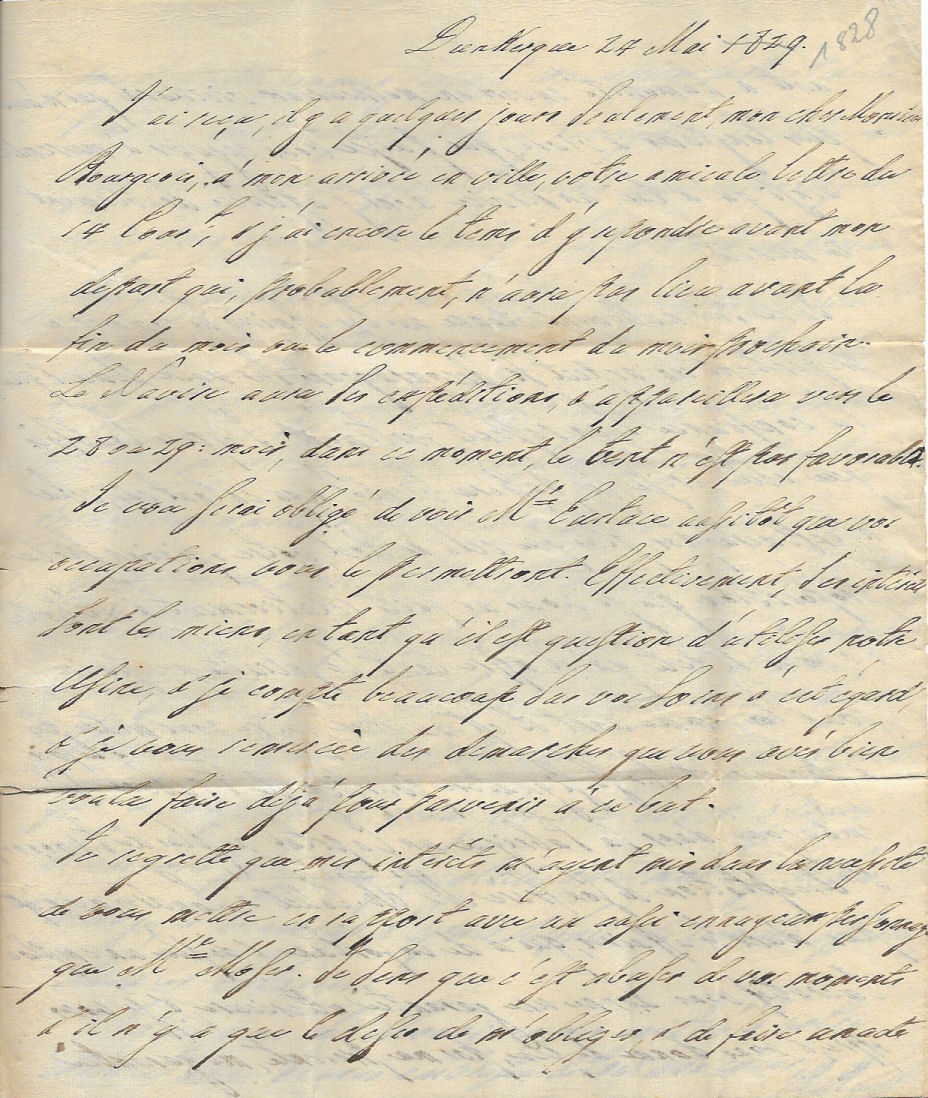 Dunkerque 24 Mai 1829. 1828
J'ai reçu, il y a quelques jours seulement, mon cher Monsieur
Bourgeois, à mon arrivée en ville, votre amicale lettre du
14 Cour.t, & j'ai encore le tems d'y repondre avant mon
depart qui, probablement, n'aura pas lieu avant la
fin du mois ou le commencement du mois prochain.
Le Navire aura ses expéditions, & appareillera vers le
28 ou 29: mais, dans ce moment, le vent n'est pas favorable.
Je vous serai obligé de voir Mr. Eustace aussitôt que vos
occupations vous le permettront. Effectivement, ses intérêts
sont les miens, en tant qu'il est question d'utiliser notre
Usine, & je compte beaucoup sur vos soins à cet égard,
& je vous remercie des demarches que vous avés bien
voulu faire déjà pour parvenir à ce but.
Je regrette que mes intérêts m'ayent mis dans la necessité
de vous mettre en rapport avec un aussi ennuyeux personnage
que Mr. Moses. Je sens que c'est abuser de vos moments
& il n'y a que le desir de m'obliger, & de faire un acte